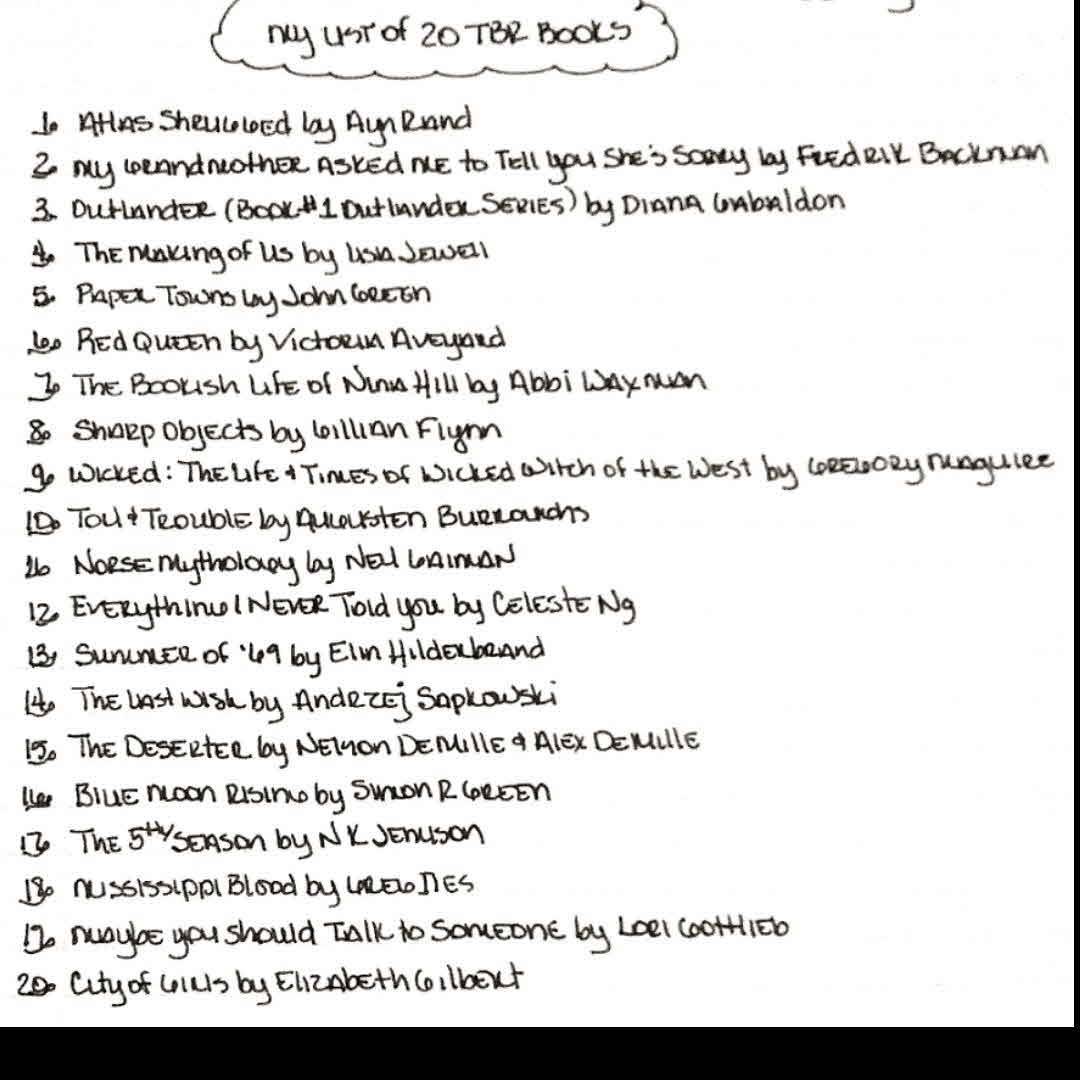 My List of 20 TBR Books
1. Atlas Shrugged by Ayn Rand
2. My Grandmother Asked Me to Tell you She's Sorry by Fredrik Backman
3. Outlander (Book #1 Outlander Series) by Diana Gabaldon
4. The Making of Us by Lisa Jewell
5. Paper Towns by John Green
6. Red Queen by Victoria Aveyard
7. The Bookish Life of Nina Hill by Abbi Waxman
8. Sharp Objects by Gillian Flynn
9. Wicked: The Life & Times of Wicked Witch of the West by Gregory Maguire
10. Toil & Trouble by Augusten Burroughs
11. Norse Mythology by Neil Gaiman
12. Everything I Never Told you by Celeste Ng
13. Summer of '69 by Elin Hilderbrand
14. The Last Wish by Andrzej Sapkowski
15. The Deserter by Nelson DeMille & Alex DeMille
16. Blue Moon Rising by Simon R Green
17. The 5th Season by NK Jemison
18. Mississippi Blood by Greg Iles
19. Maybe you should Talk to Someone by Lori Gottlieb
20. City of Girls by Elizabeth Gilbert